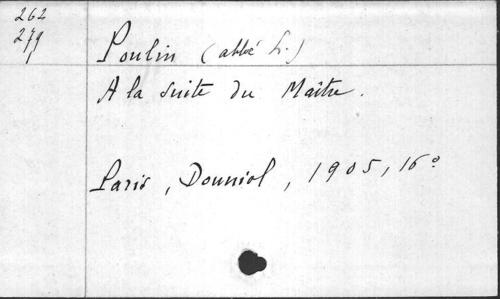 262
279
Poulin (abbé L.)
A la suite du Maître.
Paris, Douniol, 1905, 16º